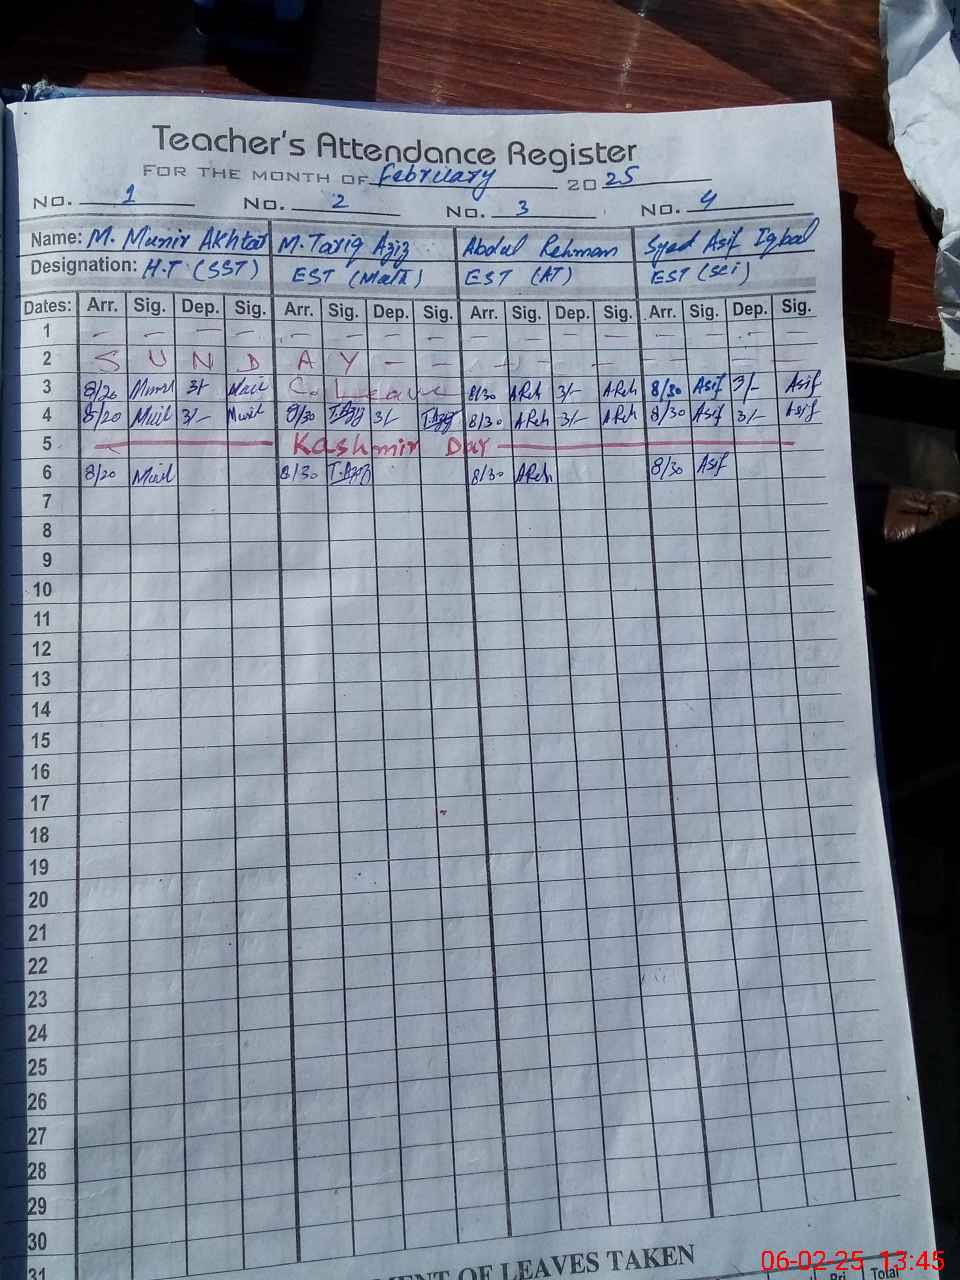 Teacher's Attendance Register
FOR THE MONTH OF February 2025
No. 1 No. 2 No. 3 No. 4
Name: M. Munir Akhtar M. Tariq Aziz Abdul Rehman Syed Asif Iqbal
Designation: H.T (SST) EST (Math) EST (AT) EST (Sci)
Dates: Arr. Sig. Dep. Sig. Arr. Sig. Dep. Sig. Arr. Sig. Dep. Sig. Arr. Sig. Dep. Sig.
1 – – – – – – – – – – – – – – – –
2 S U N D A Y – – – – – – – – –
3 8/20 3/- C. Leave 8/30 AReh 3/- AReh 8/30 Asif 3/- Asif
4 8/20 3/- 8/30 T.Aziz 3/- T.Aziz 8/30 AReh 3/- AReh 8/30 Asif 3/- Asif
5 Kashmir Day
6 8/20 8/30 T.Aziz 8/30 AReh 8/30 Asif
7
8
9
10
11
12
13
14
15
16
17
18
19
20
21
22
23
24
25
26
27
28
29
30
31
MENT OF LEAVES TAKEN
Total
06-02-25 13:45